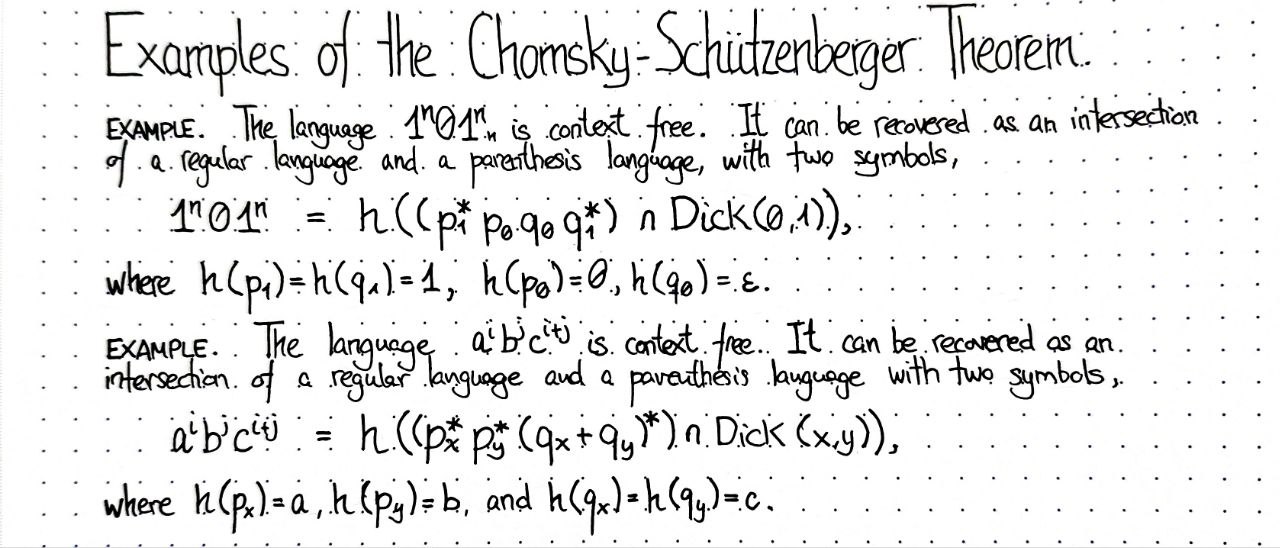 Examples of the Chomsky-Schützenberger Theorem.
EXAMPLE. The language 1ⁿ01ⁿ is context free. It can be recovered as an intersection
of a regular language and a parenthesis language, with two symbols,
1ⁿ01ⁿ = h((p₁* p₀ q₀ q₁*) ∩ Dick(0,1)),
where h(p₁)=h(q₁)=1, h(p₀)=0, h(q₀)=ε.
EXAMPLE. The language aⁱbʲcⁱ⁺ʲ is context free. It can be recovered as an
intersection of a regular language and a parenthesis language with two symbols,
aⁱbʲcⁱ⁺ʲ = h((pₓ* p_y* (qₓ+q_y)*) ∩ Dick(x,y)),
where h(pₓ)=a, h(p_y)=b, and h(qₓ)=h(q_y)=c.